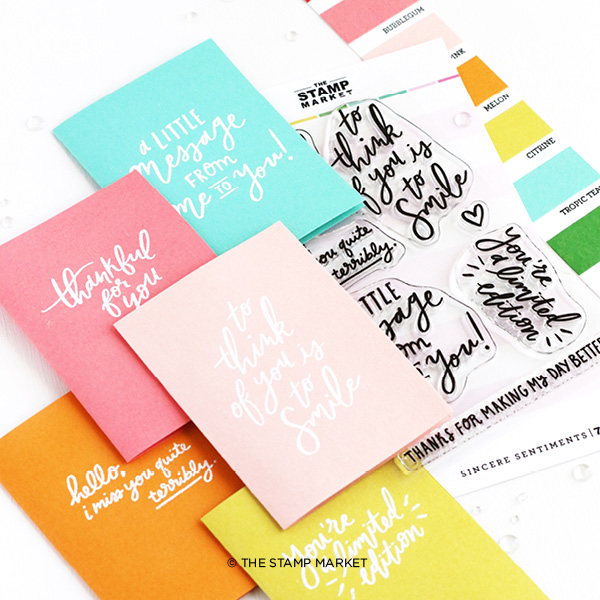 BUBBLEGUM
MELON
CITRINE
THE
STAMP
MARKET
a LITTLE
message
FROM
me TO you!
to
think
of you is
to
smile
TROPIC TEA
thankful
for
you
you quite
terribly.
you're
a limited
edition
LITTLE
to
think
of you is
to
smile
you!
THANKS FOR MAKING MY DAY BETTER
SINCERE SENTIMENTS | 7
hello,
i miss you quite
terribly.
you're
a limited
edition
© THE STAMP MARKET